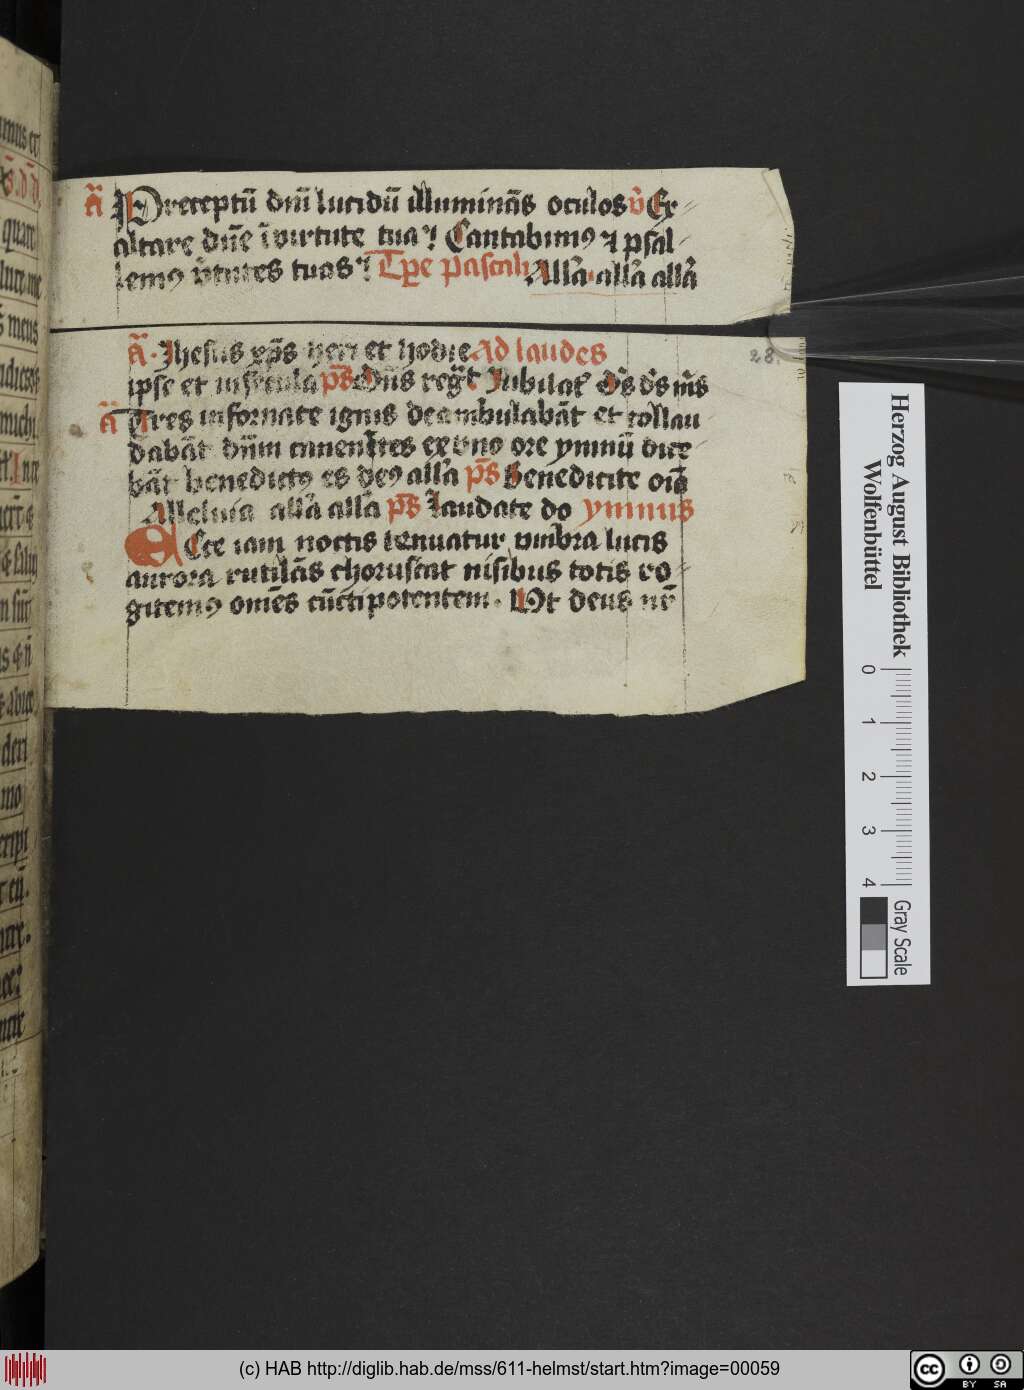 ā Preceptū dn̄i lucidū illuminās oculos v̄ Ex
altare dn̄e ī virtute tua Cantabimꝰ ⁊ psal
lemꝰ v̄tutes tuas Tꝑe pascali All'a all'a all'a
ā Jhesus xp̄s heri et hodie Ad laudes
ipse et in secula p̄s Dn̄s reg̃t Jubilat̃ D̄s d̄s m̄s
ā Tres in fornace ignis deambulabāt et collau
dabāt dn̄m canentes ex uno ore ymnū dice
bāt benedictꝰ es deꝰ all'a p̄s Benedicite oīa
Alleluia all'a all'a p̄s Laudate do ymnus
ECce iam noctis tenuatur vmbra lucis
aurora rutilās choruscat nisibus totis ro
gitemꝰ om̄es cūctipotentem. Vt deus nr̄
28
Herzog August Bibliothek
Wolfenbüttel
0 1 2 3 4
Gray Scale
(c) HAB http://diglib.hab.de/mss/611-helmst/start.htm?image=00059
cc BY SA